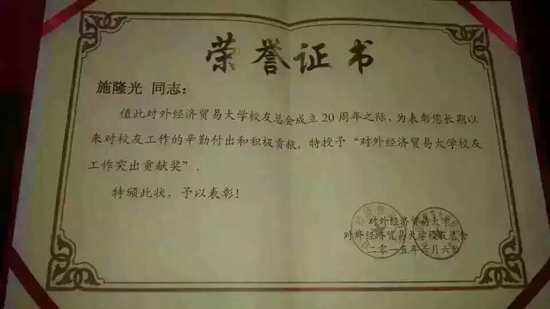 荣誉证书
施隆光 同志：
值此对外经济贸易大学校友总会成立20周年之际，为表彰您长期以
来对校友工作的辛勤付出和积极贡献，特授予“对外经济贸易大学校友
工作突出贡献奖”.
特颁此状，予以表彰！
对外经济贸易大学
对外经济贸易大学校友总会
二零一五年六月六日